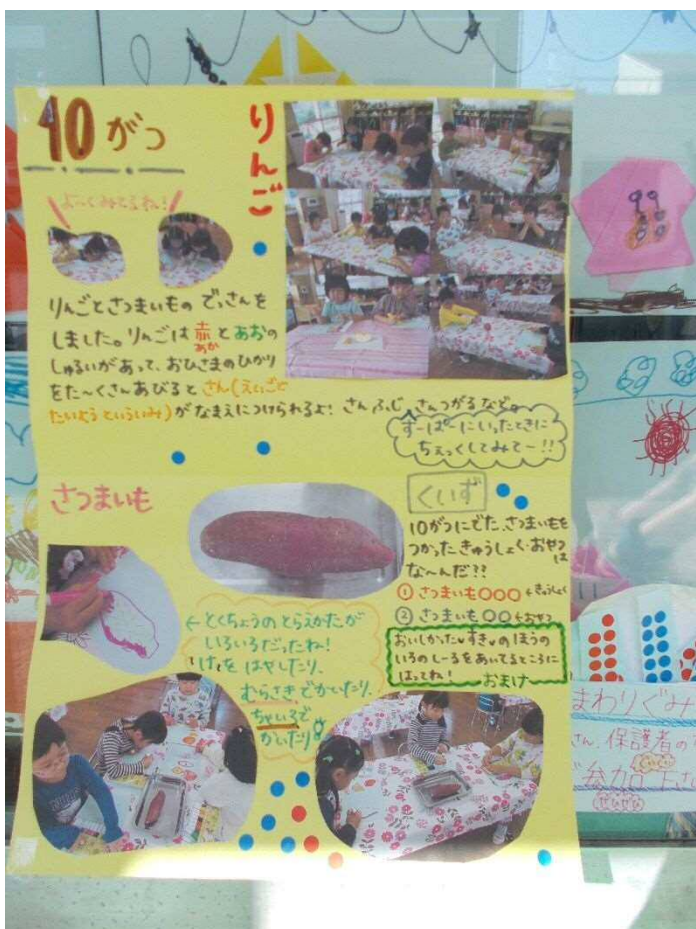 10がつ
りんご
よ〜くみてるね!
りんごとさつまいもの でっさんを
しました。りんごは 赤と あおの
あか
しゅるいがあって、おひさまのひかり
をた〜くさんあびると さん(えいごで
たいようといういみ)がなまえにつけられるよ! さんふじ、さんつがるなど。
すーぱーにいったときに
ちぇっくしてみてー!!
さつまいも
くいず
10がつにでた、さつまいもを
つかった きゅうしょく・おやつ
は
な〜んだ??
① さつまいも○○○ ←きゅうしょく
② さつまいも○○ ←おやつ
おいしかった♥すき♥の ほうの
いろの しーるを あいてるところに
はってね!
おまけ
←とくちょうの とらえかたが
いろいろだったね!
「け」を はやしたり、
むらさきでかいたり、
ちゃいろで
かいたり
まわりぐみ
さん、保護者の
参加下さ
ぜひぜひ